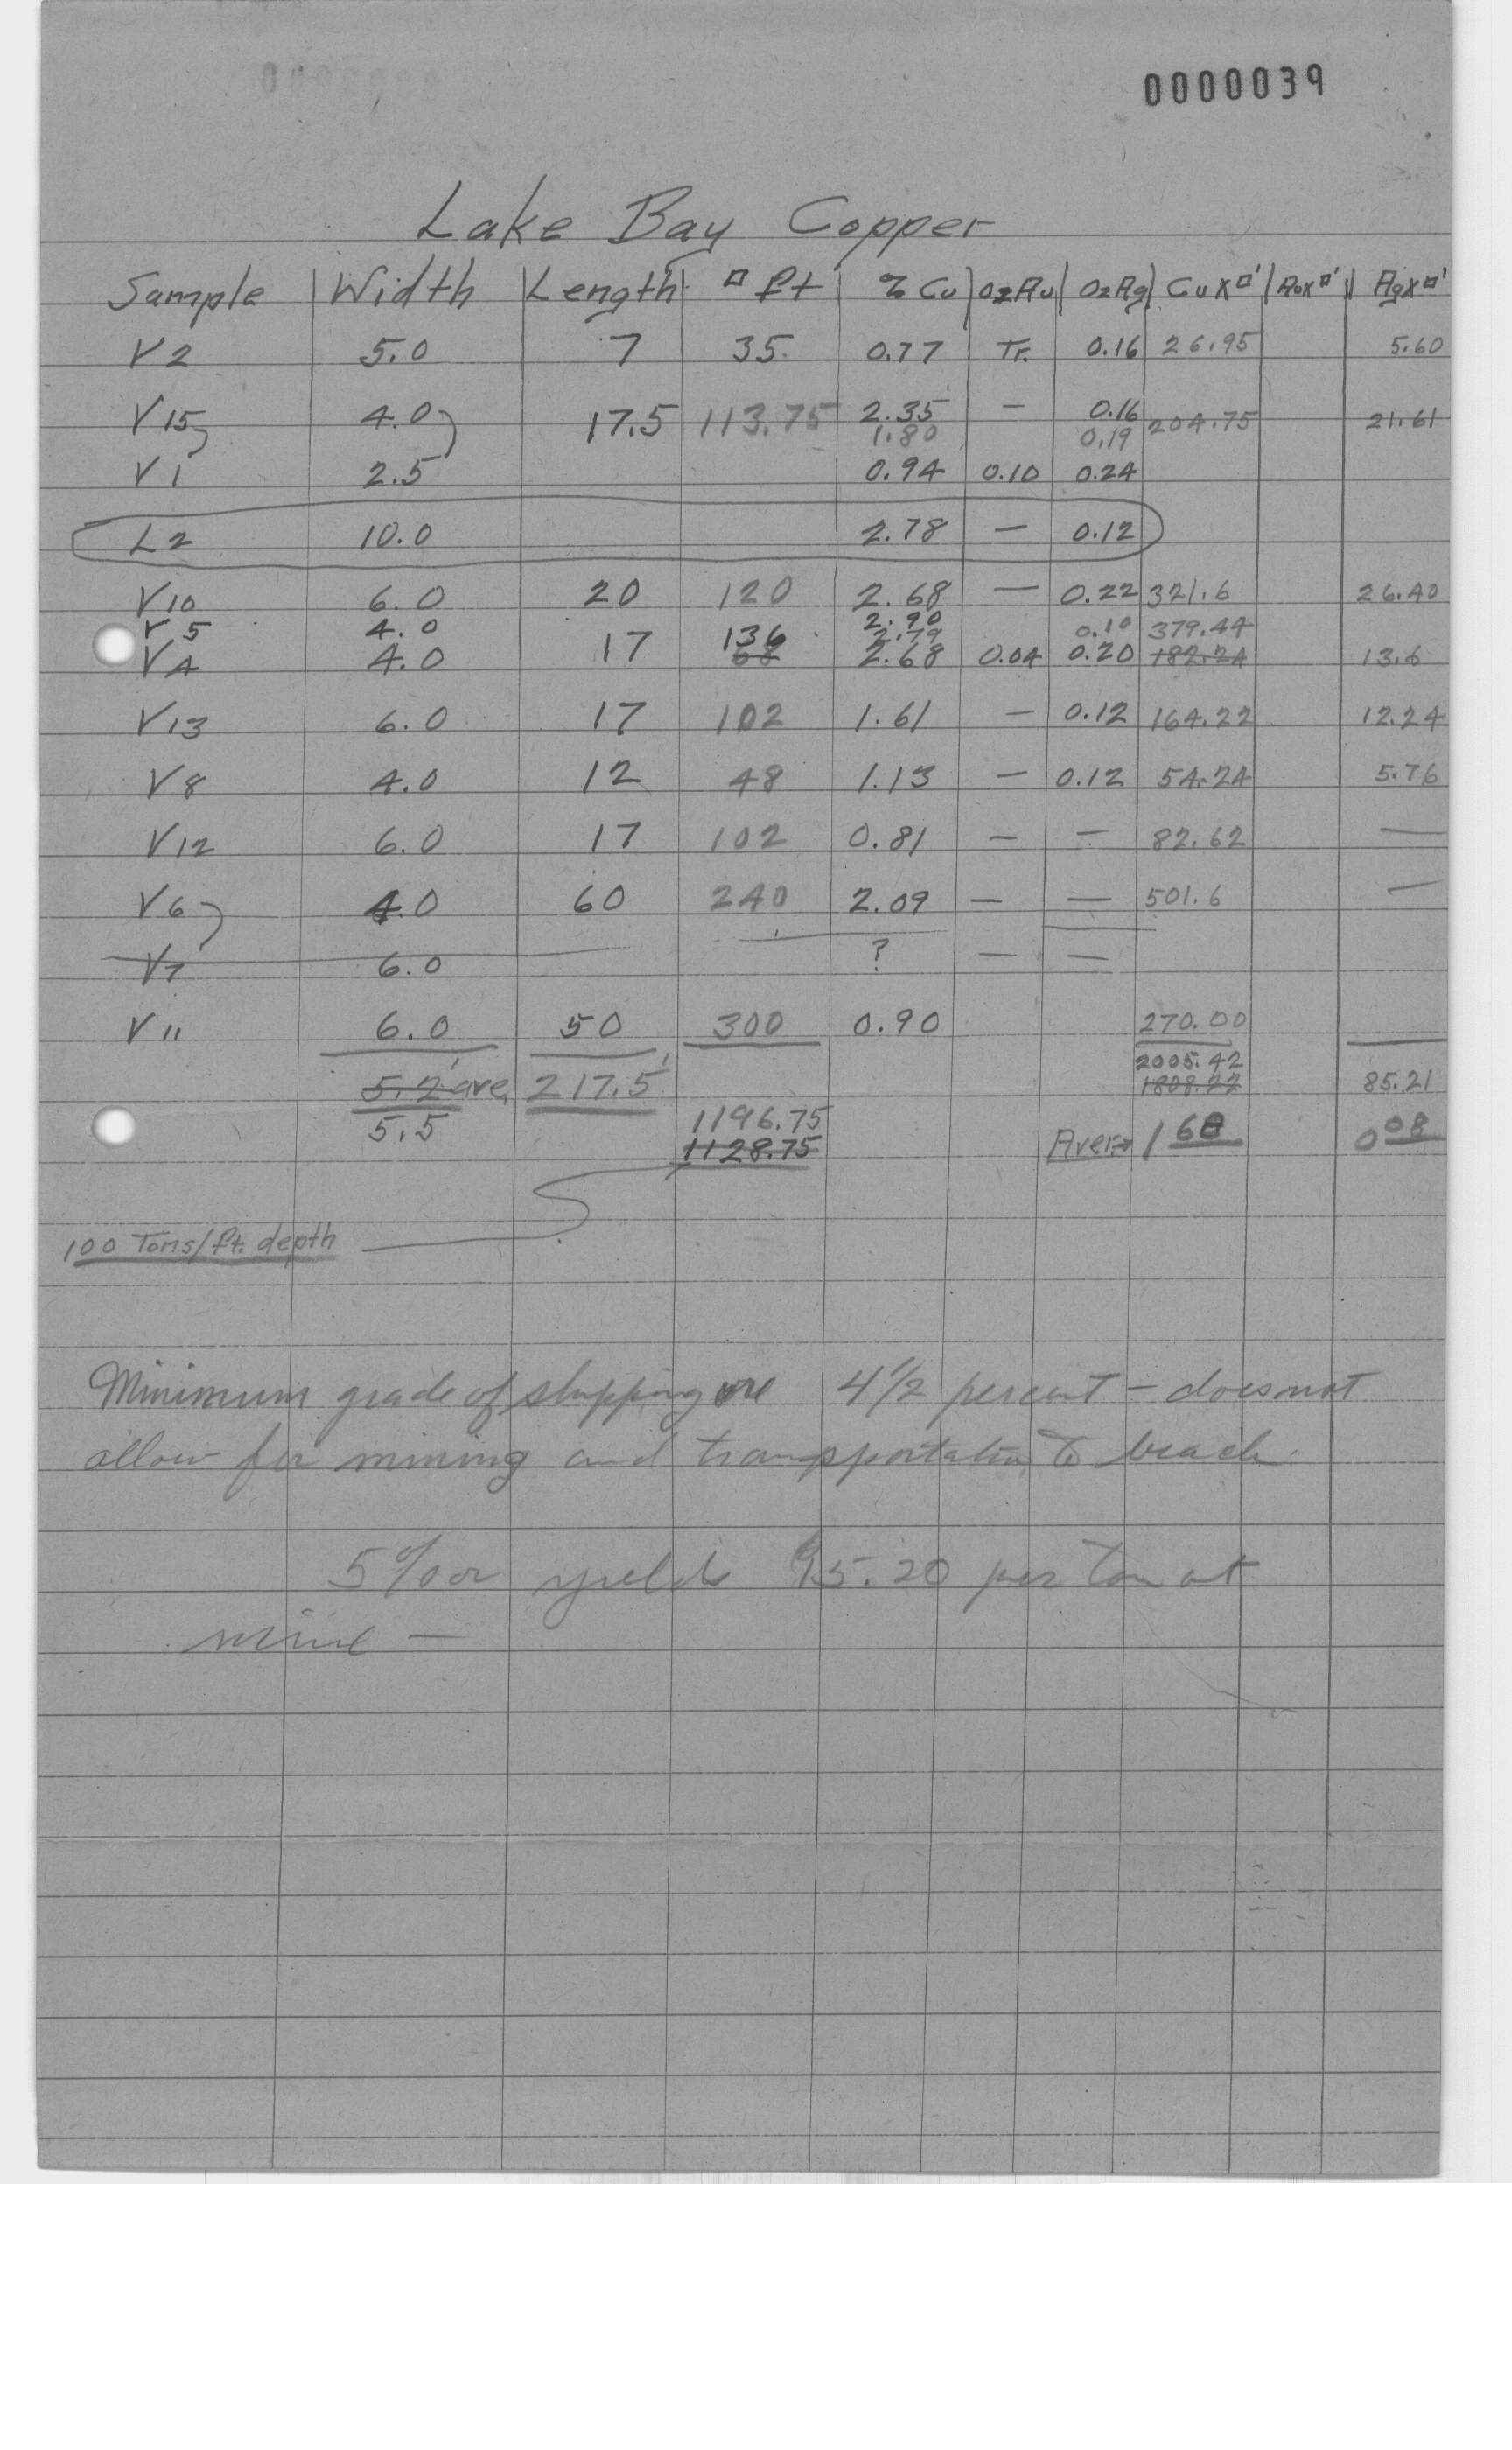 0000039
Lake Bay Copper
Sample Width Length □ ft % Cu Oz Au Oz Ag Cu X □' Au X □' Ag X □'
V2 5.0 7 35. 0.77 Tr. 0.16 26.95 5.60
V15 4.0 17.5 113.75 2.35 — 0.16 204.75 21.61
1.80 0.19
V1 2.5 0.94 0.10 0.24
L2 10.0 2.78 — 0.12
V10 6.0 20 120 2.68 — 0.22 321.6 26.40
V5 4.0 17 136 2.90 0.10 379.44
2.79
V4 4.0 68 2.68 0.04 0.20 182.24 13.6
V13 6.0 17 102 1.61 — 0.12 164.22 12.24
V8 4.0 12 48 1.13 — 0.12 54.24 5.76
V12 6.0 17 102 0.81 — — 82.62 —
V6 4.0 60 240 2.09 — — 501.6 —
V7 6.0 ? — —
V11 6.0 50 300 0.90 270.00
2005.42
5.2' ave. 217.5' 1808.22 85.21
5.5 1196.75 Aver. 1 68 0 08
1128.75
100 Tons/ft. depth
Minimum grade of shipping ore 4 1/2 percent – does not
allow for mining and transportation to beach.
5% or yields $5.20 per ton at
mine —